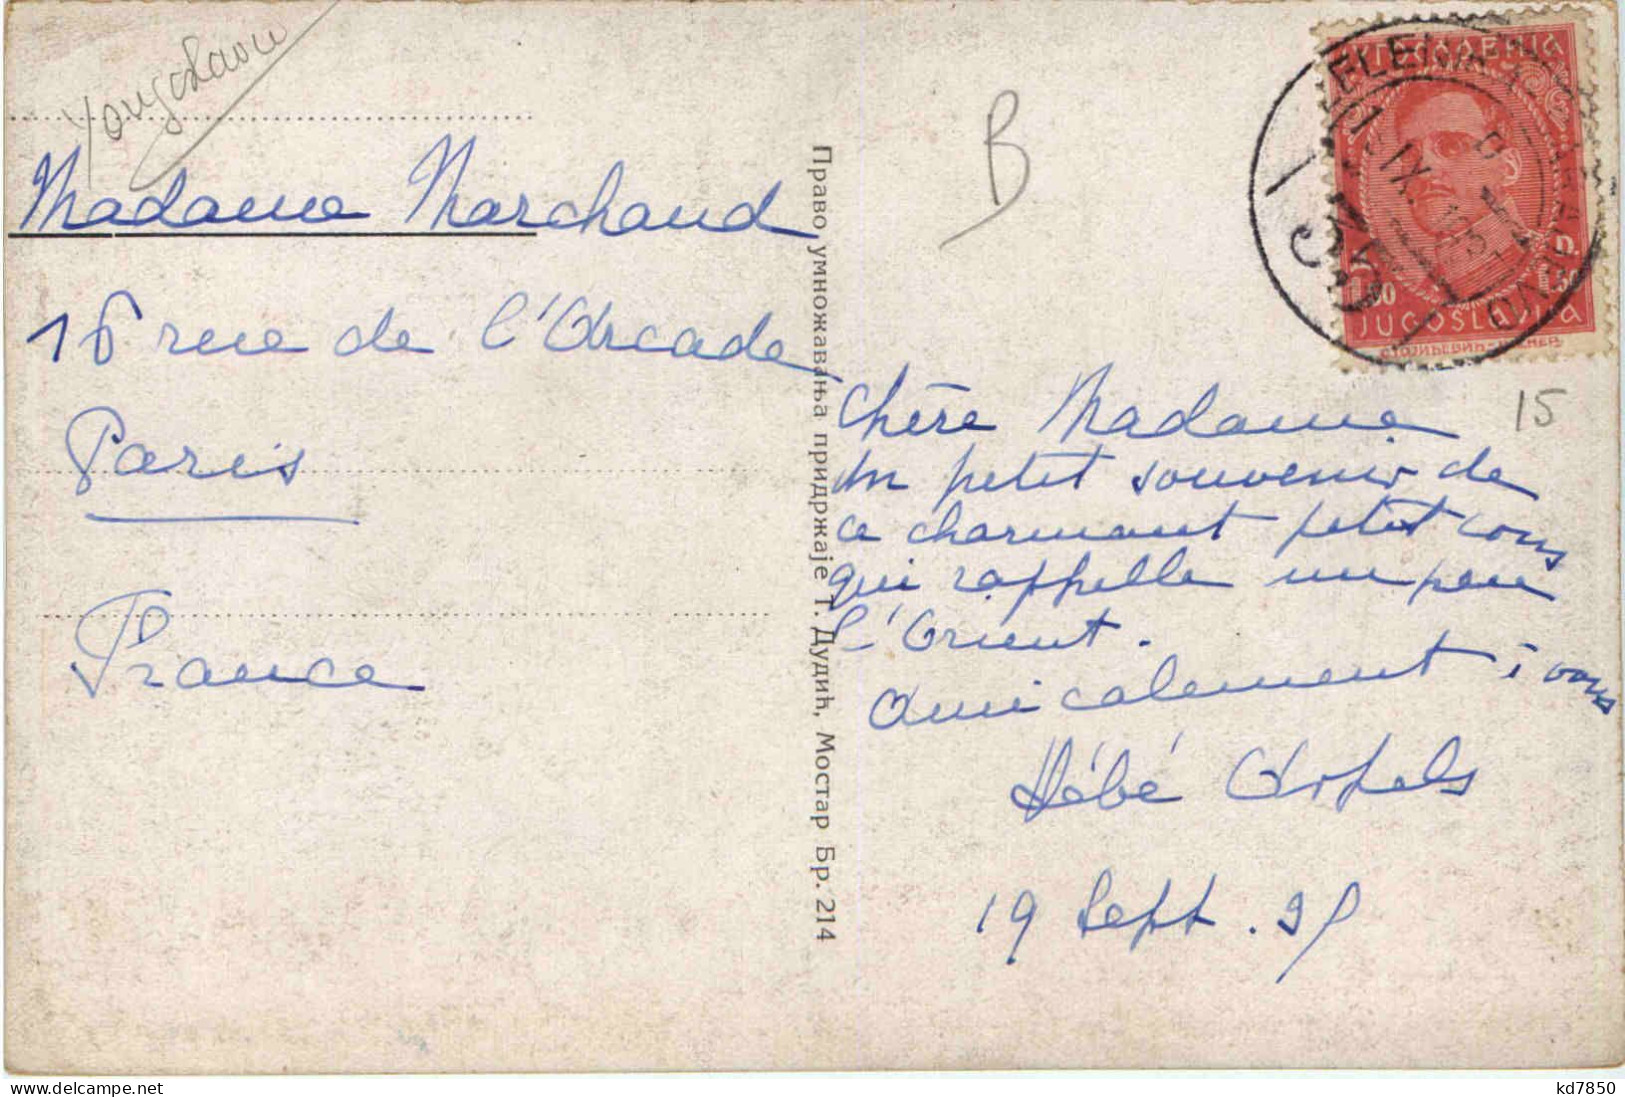 Yougoslavie
Madame Marchand
16 rue de l'Arcade
Paris
France
Право умножавања придржаје Т. Дудић, Мостар Бр. 214
B
ЈУГОСЛАВИЈА
JUGOSLAVIJA
15
Chère Madame
Un petit souvenir de
ce charmant petit coin
qui rappelle un peu
l'Orient.
Amicalement à vous
Bébé Arpels
19 Sept.
kd7850